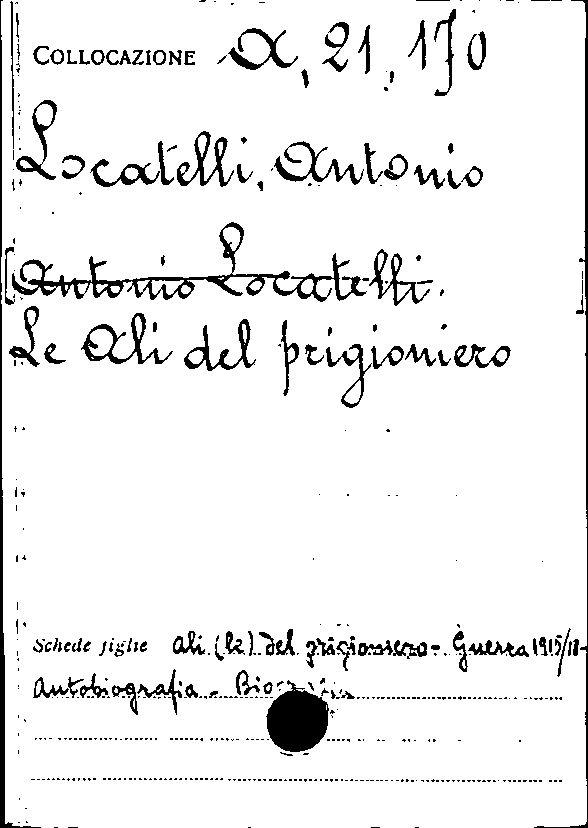 COLLOCAZIONE A, 21, 170
Locatelli, Antonio
[Antonio Locatelli.]
Le Ali del prigioniero
Schede figlie Ali (le) del prigioniero - Guerra 1915/18-
Autobiografia -